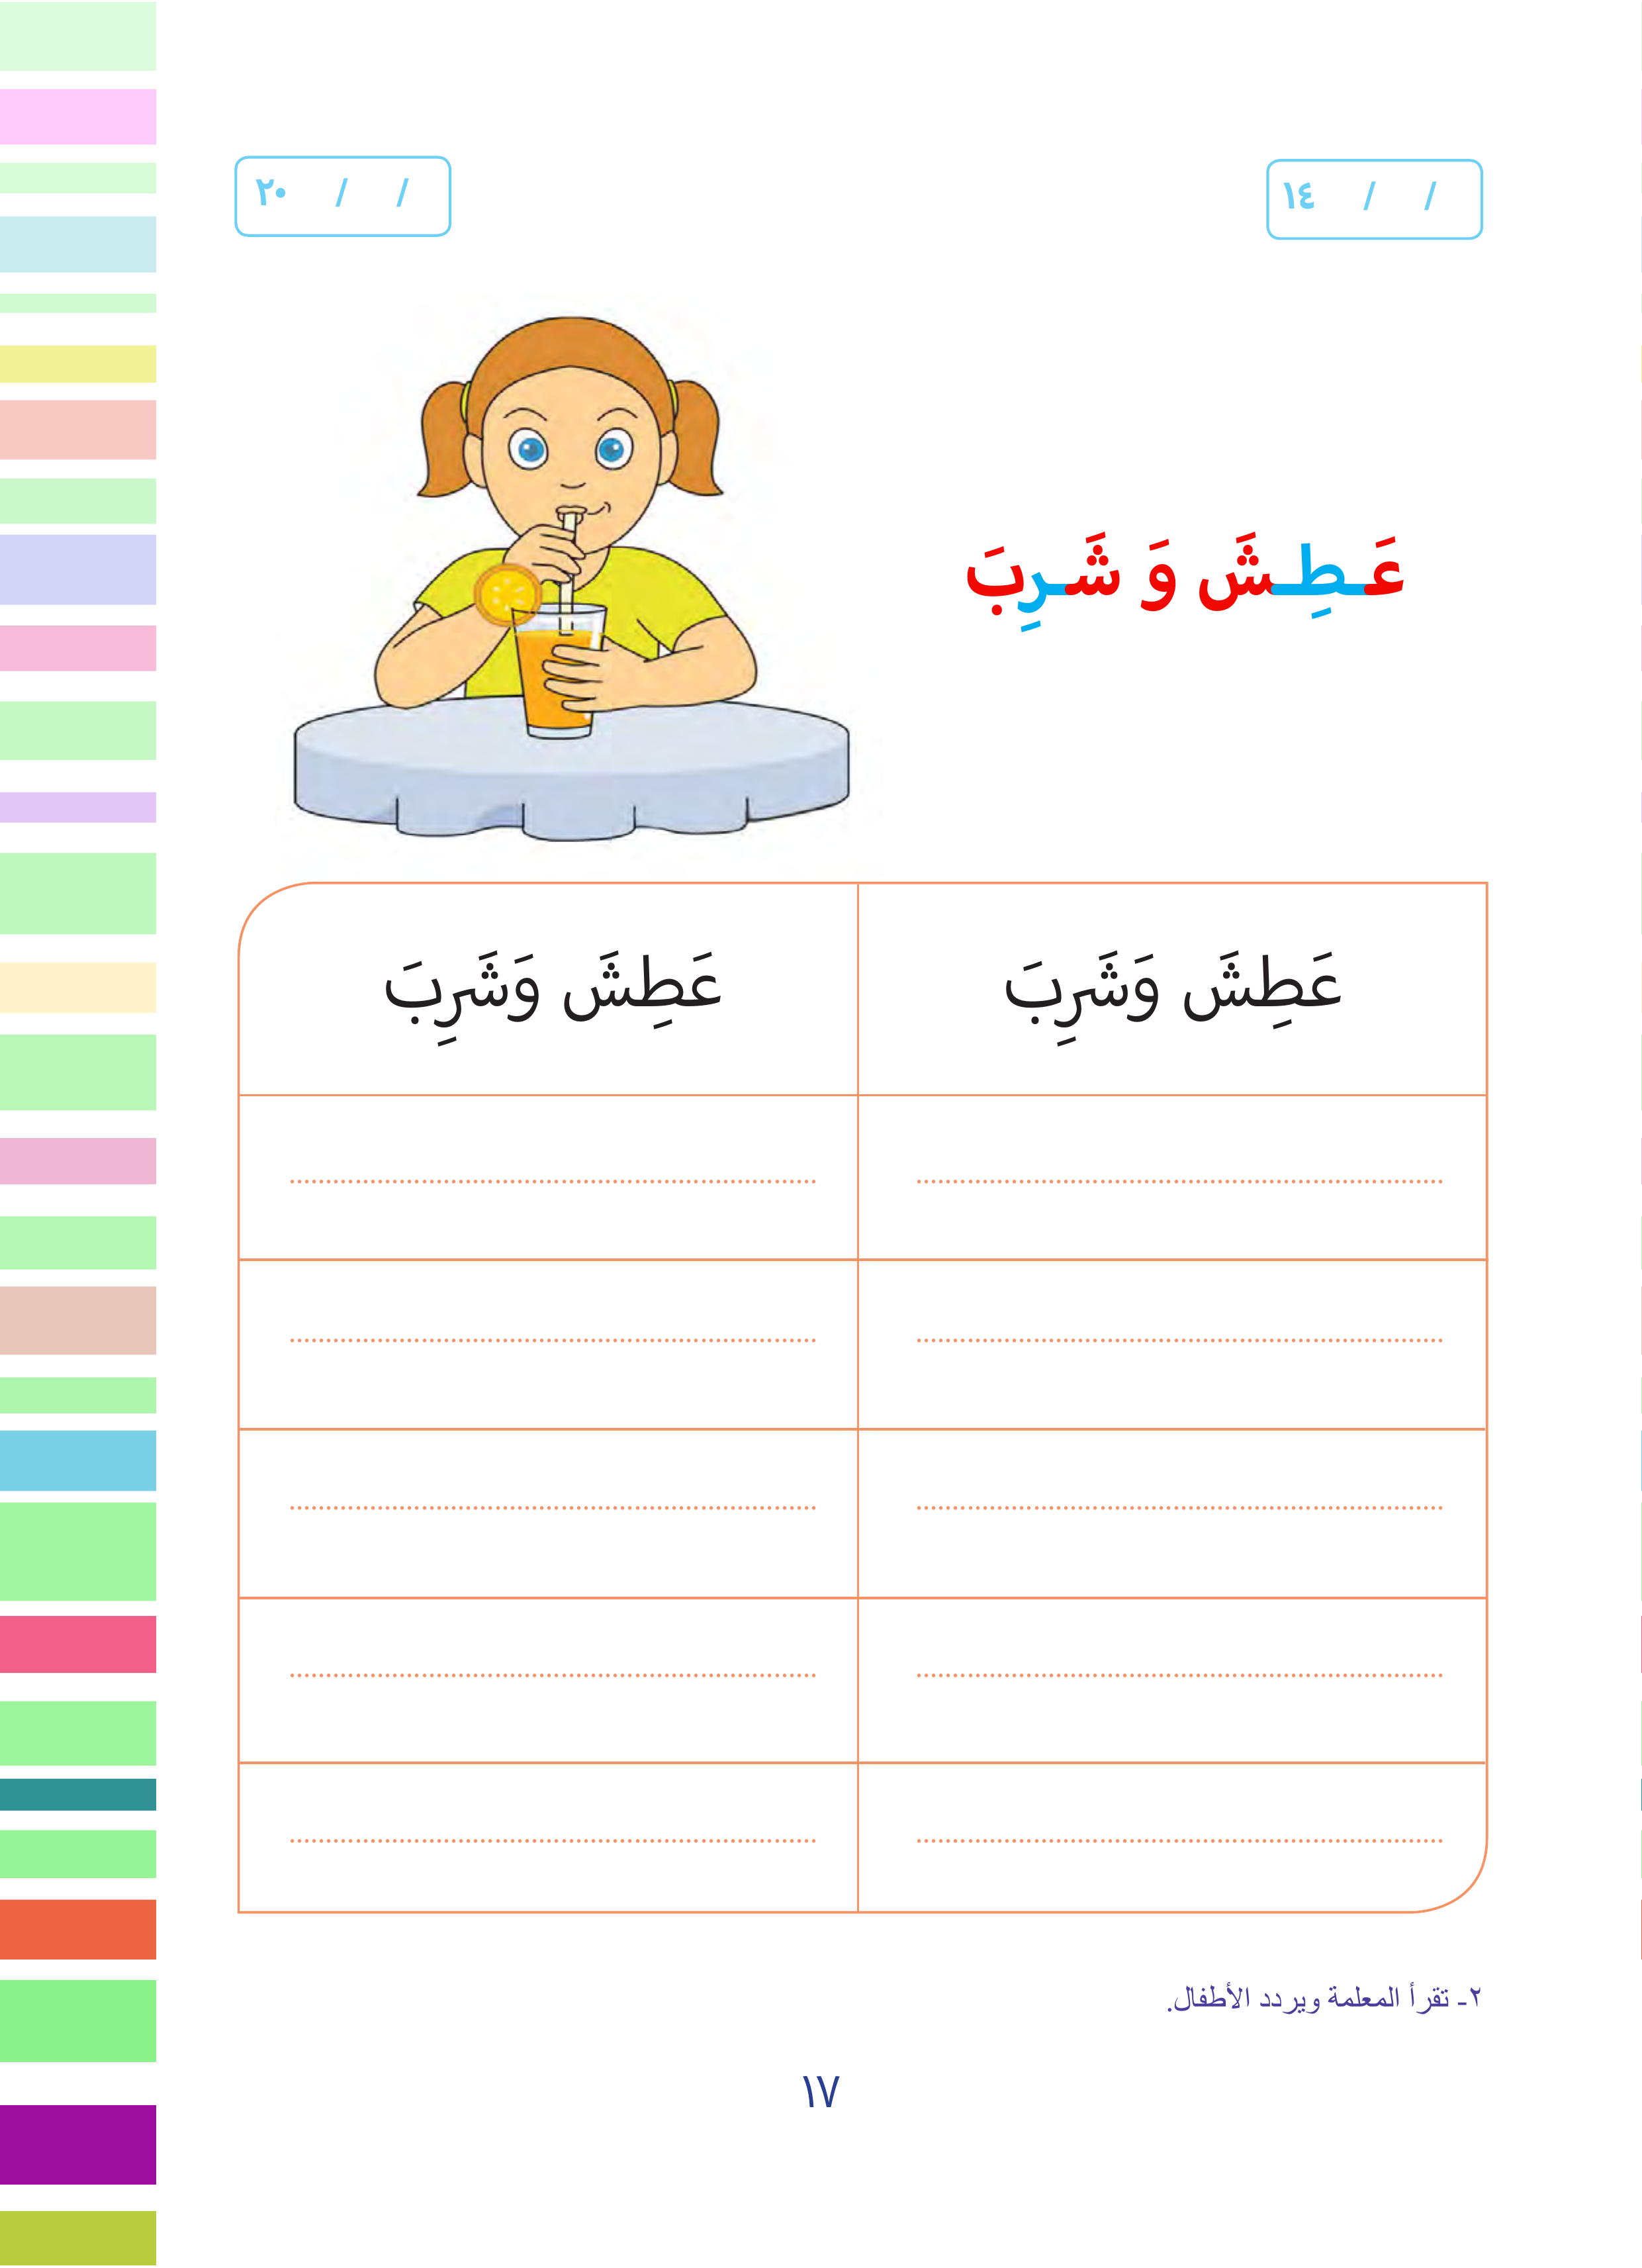 ١٤ / /
٢٠ / /
عَـطِـشَ وَ شَـرِبَ
عَطِشَ وَشَرِبَ
عَطِشَ وَشَرِبَ
٢- تقرأ المعلمة ويردد الأطفال.
١٧